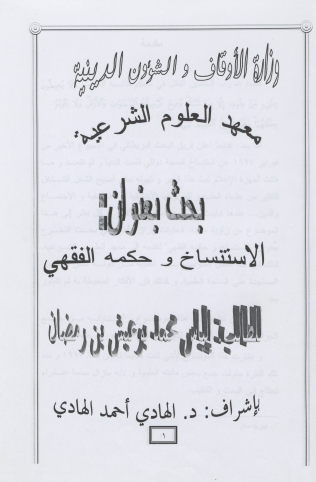 وزارة الأوقاف و الشؤون الدينية
معهد العلوم الشرعية
بحث بعنوان:
الاستنساخ و حكمه الفقهي
محمد بن رمضان
بإشراف: د. الهادي أحمد الهادي
١